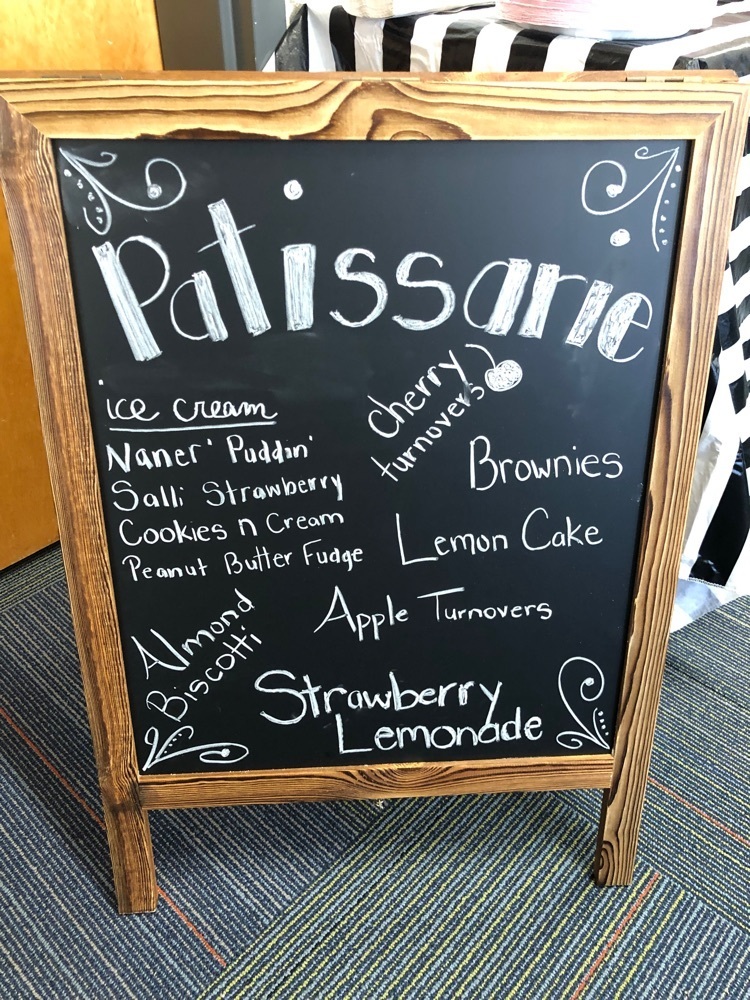 Patissarie
ice cream
Naner' Puddin'
Salli Strawberry
Cookies n Cream
Peanut Butter Fudge
cherry
turnovers
Brownies
Lemon Cake
Apple Turnovers
Almond
Biscotti
Strawberry
Lemonade